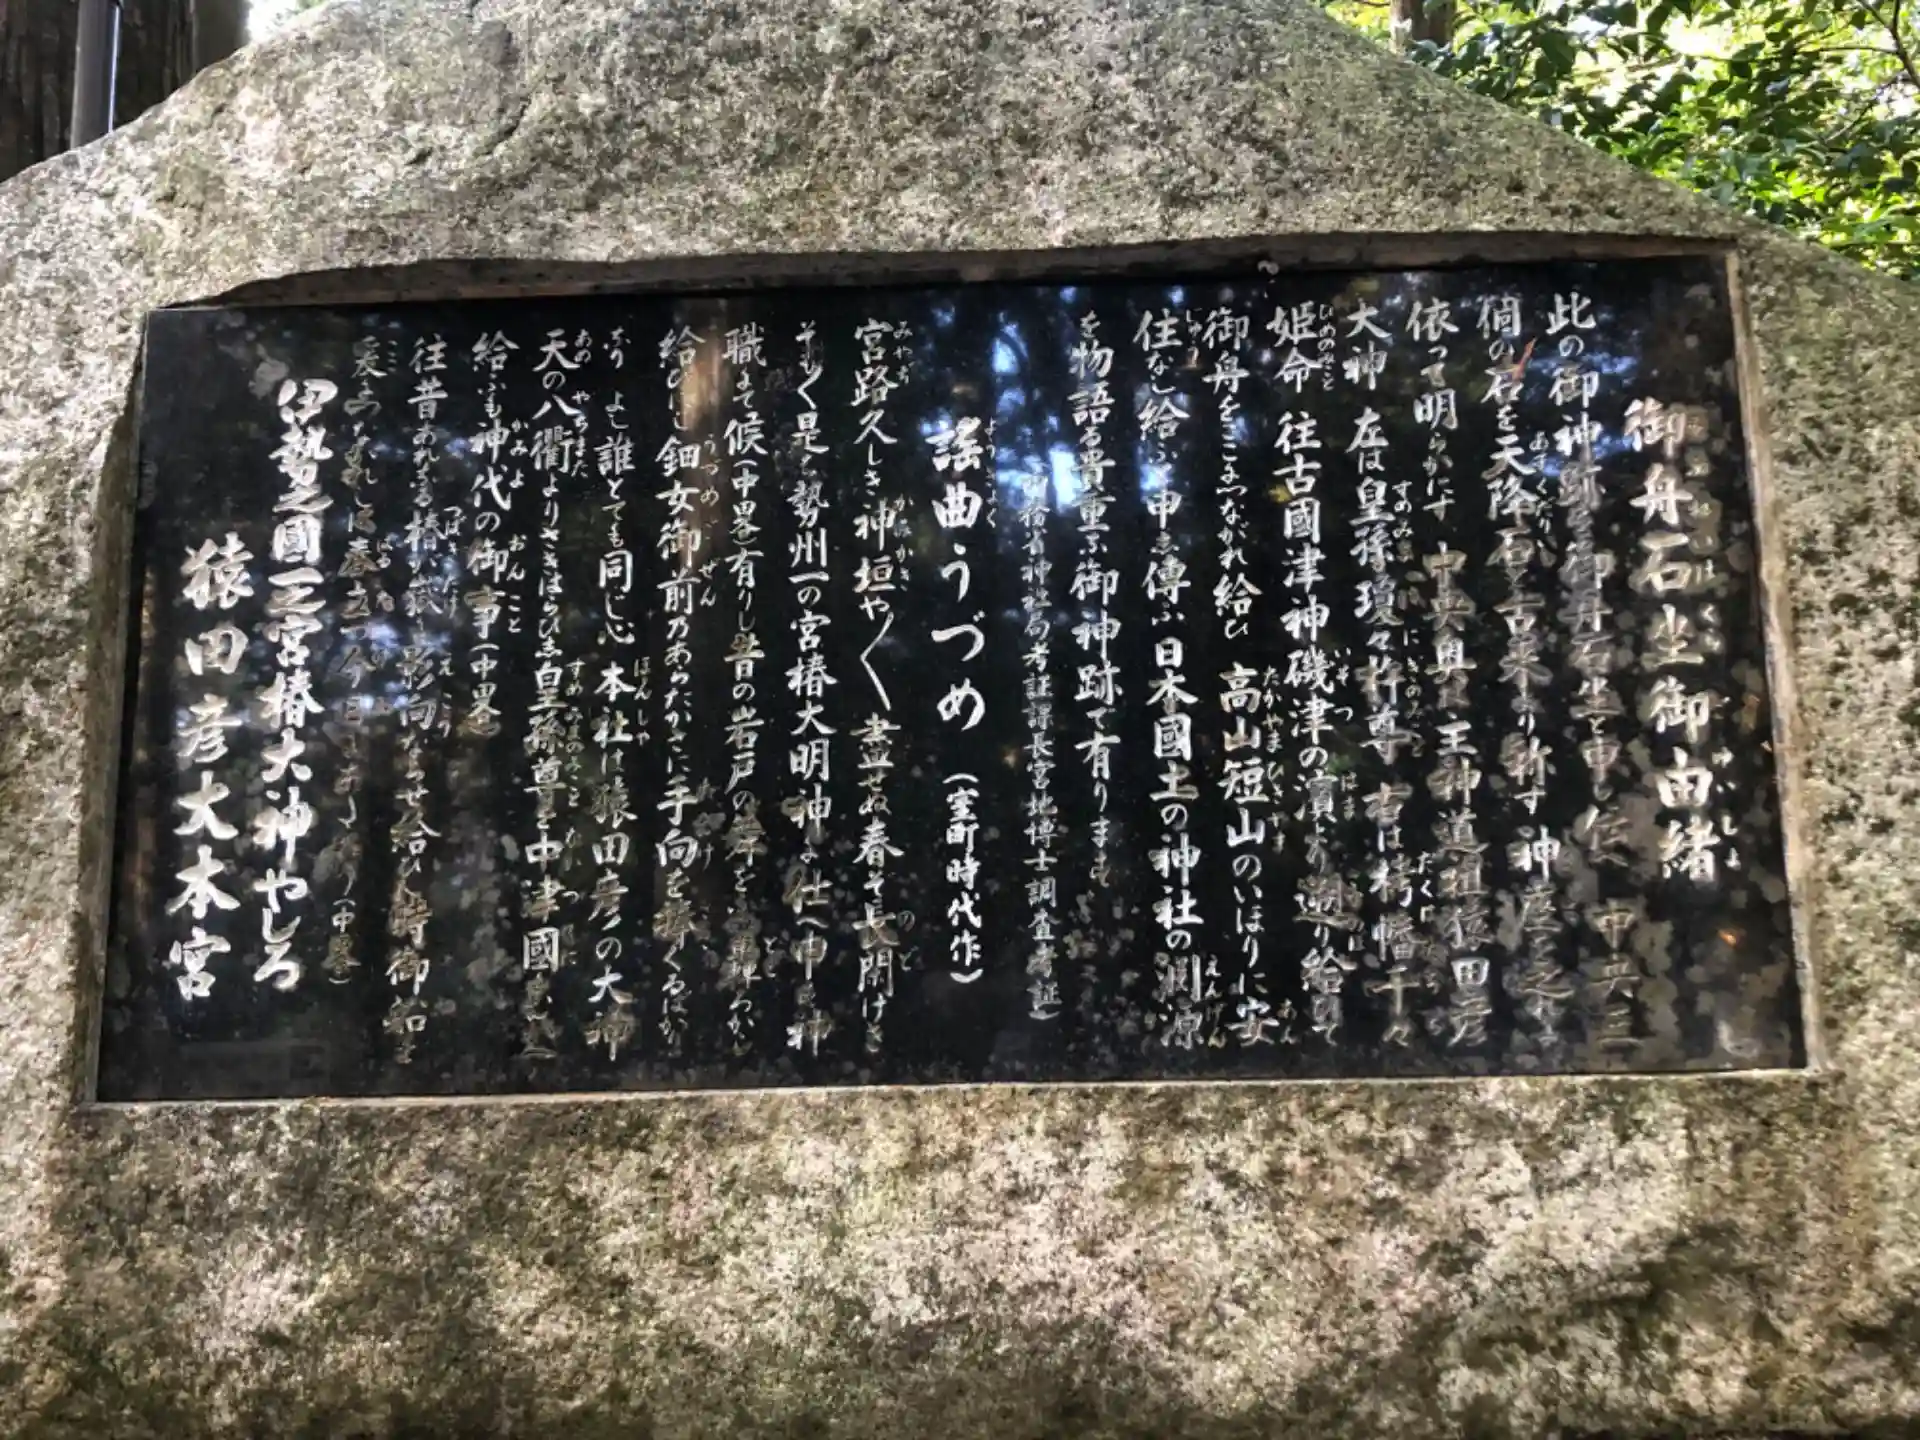 御舟石坐御由緒
此の御神跡を御舟石坐と申し伝へ 中央三
個の石を天降石と古来より称す 神座之なる
依って明らかに 中央奥 主神道祖猿田彦
大神 左は皇孫瓊々杵尊 右は栲幡千々
姫命 往古國津神磯津の濱より遡り給ひて
御舟をこゝにつながれ給ひ 高山短山のいほりに安
住なし給ふと申し傳ふ 日本國土の神社の渕源
を物語る貴重な御神跡で有ります
(内務省神社局考証課長宮地博士調査考証)
謡曲うづめ (室町時代作)
宮路久しき神垣や〱 盡せぬ春ぞ長閑けき
そも〱是は勢州一の宮椿大明神に仕へ申す神
職にて候(中畧)有りし昔の岩戸の舞を
給ひにし鈿女御前乃あらたかさに手向を捧ぐるばかり
なり よし誰とても同じ心 本社は猿田彦の大神
天の八衢よりさきはらひし皇孫尊を中津國
給ふも神代の御事(中畧)
往昔あれなる椿が嶽に影向ならせ給ひし時御船を
(中畧)
伊勢之國一之宮椿大神やしろ
猿田彦大本宮